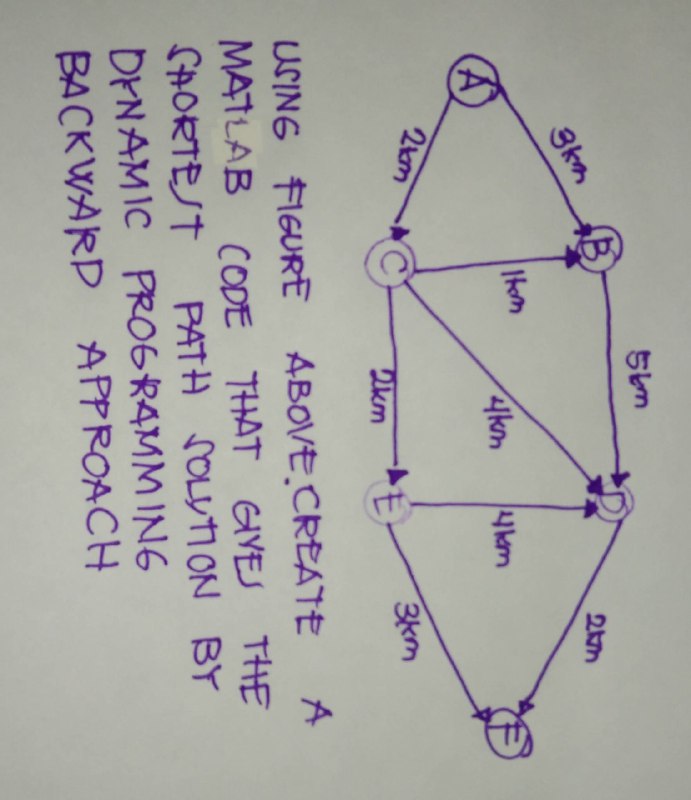 A
3km
B
5km
2km
C
1km
4km
D
2km
E
4km
2km
3km
F
USING FIGURE ABOVE. CREATE A
MATLAB CODE THAT GIVES THE
SHORTEST PATH SOLUTION BY
DYNAMIC PROGRAMMING
BACKWARD APPROACH